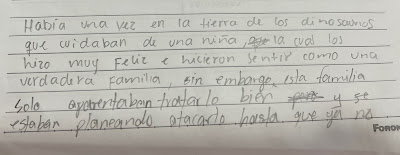 Había una vez en la tierra de los dinosaurios
que cuidaban de una niña, la cual los
hizo muy Feliz e hicieron sentir como una
verdadera familia, sin embargo, esta familia
solo aparentaban tratarlo bien y se
estaban planeando atacarlo hasta que ya no